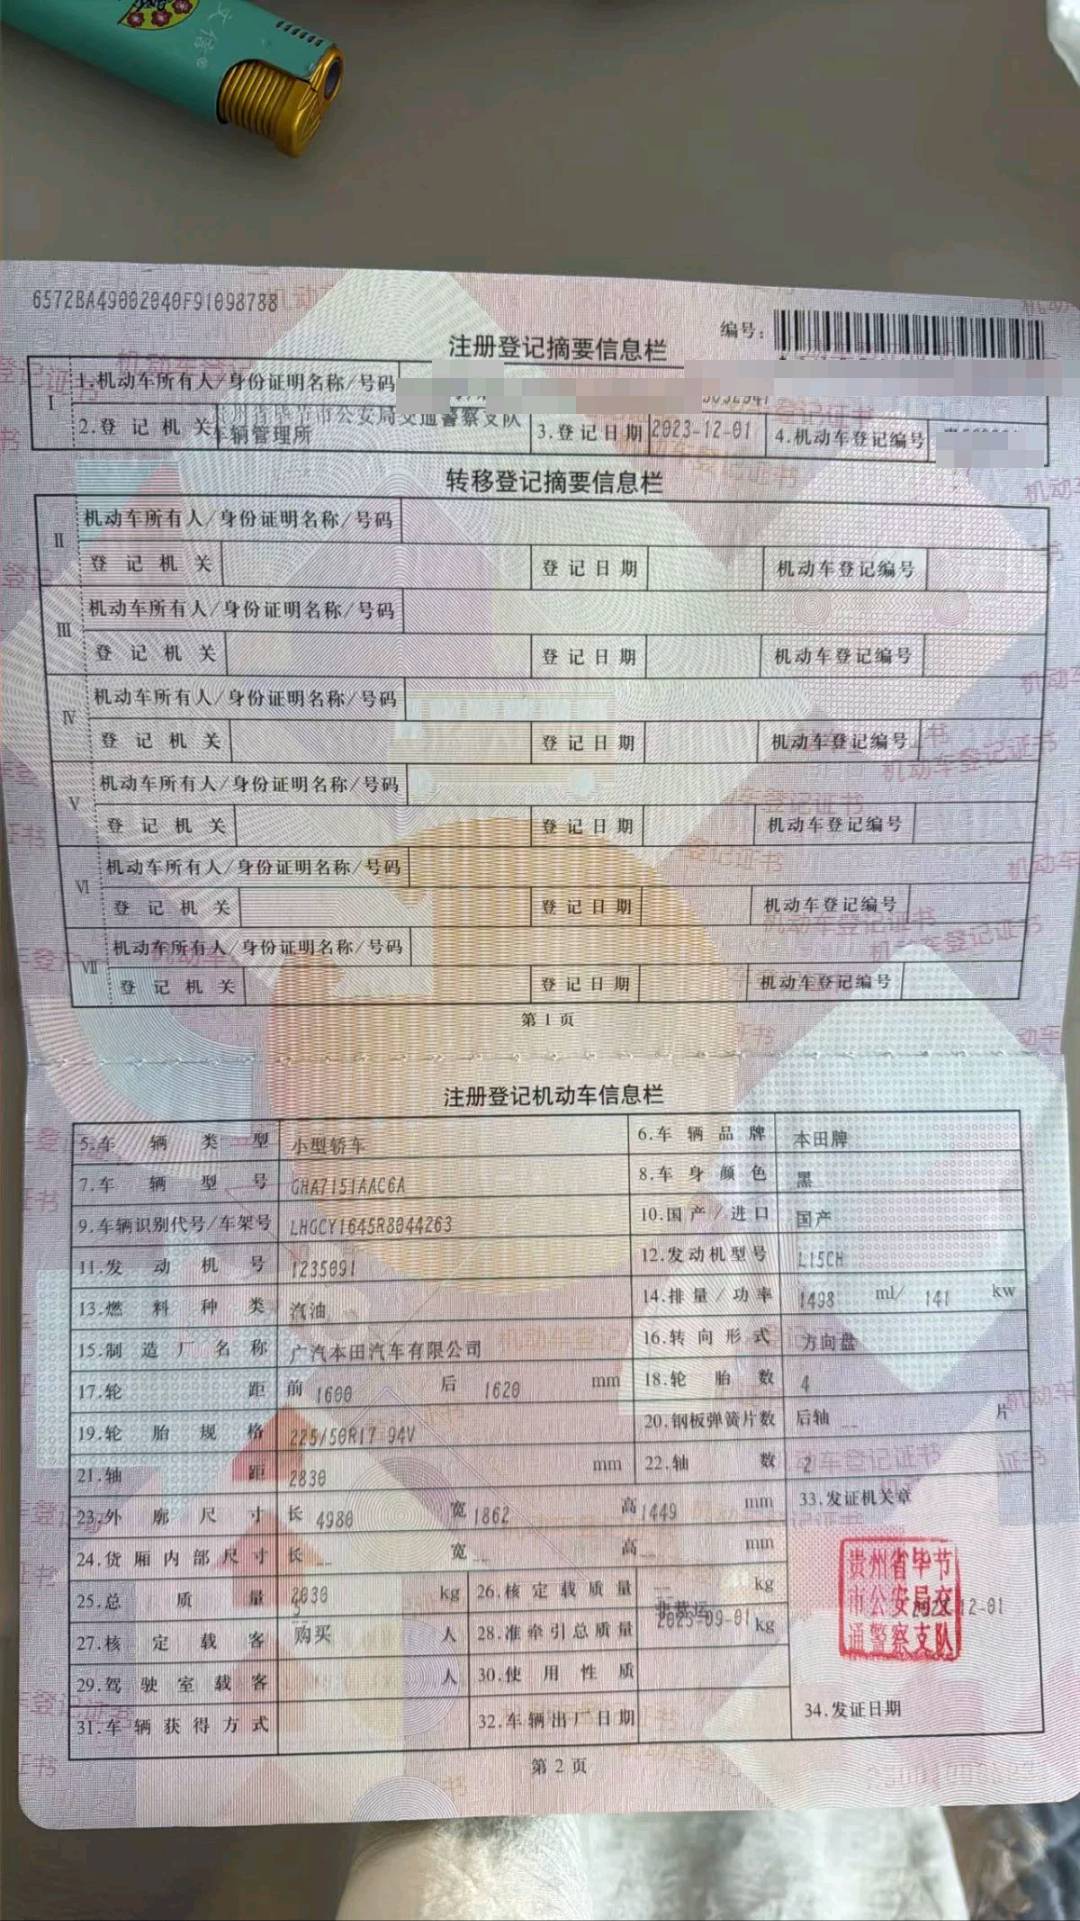 文信®
6572BA49002040F91098788
编号:
注册登记摘要信息栏
I
1.机动车所有人/身份证明名称/号码
2.登记机关 贵州省毕节市公安局交通警察支队车辆管理所 3.登记日期 2023-12-01 4.机动车登记编号
转移登记摘要信息栏
II 机动车所有人/身份证明名称/号码
登记机关 登记日期 机动车登记编号
III 机动车所有人/身份证明名称/号码
登记机关 登记日期 机动车登记编号
IV 机动车所有人/身份证明名称/号码
登记机关 登记日期 机动车登记编号
V 机动车所有人/身份证明名称/号码
登记机关 登记日期 机动车登记编号
VI 机动车所有人/身份证明名称/号码
登记机关 登记日期 机动车登记编号
VII 机动车所有人/身份证明名称/号码
登记机关 登记日期 机动车登记编号
第 1 页
注册登记机动车信息栏
5.车辆类型 小型轿车 6.车辆品牌 本田牌
7.车辆型号 GHA7151AAC6A 8.车身颜色 黑
9.车辆识别代号/车架号 LHGCY1645R8044263 10.国产/进口 国产
11.发动机号 1235091 12.发动机型号 L15CH
13.燃料种类 汽油 14.排量/功率 1498 ml/ 141 kw
15.制造厂名称 广汽本田汽车有限公司 16.转向形式 方向盘
17.轮距 前 1600 后 1620 mm 18.轮胎数 4
19.轮胎规格 225/50R17 94V 20.钢板弹簧片数 后轴 -- 片
21.轴距 2830 mm 22.轴数 2
23.外廓尺寸 长 4980 宽 1862 高 1449 mm 33.发证机关章
24.货厢内部尺寸 长 -- 宽 -- 高 -- mm
25.总质量 2030 kg 26.核定载质量 -- kg
27.核定载客 5 人 28.准牵引总质量 -- kg
29.驾驶室载客 -- 人 30.使用性质 非营运
31.车辆获得方式 购买 32.车辆出厂日期 2023-09-01
贵州省毕节市公安局交通警察支队
2023-12-01
34.发证日期
第 2 页